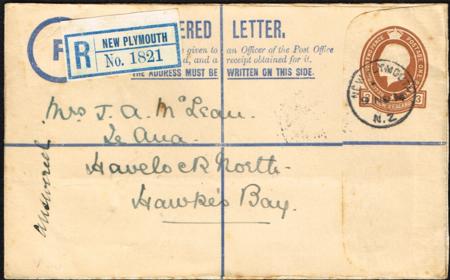 REGISTERED LETTER.
R
NEW PLYMOUTH
No. 1821
given to an Officer of the Post Office
and a receipt obtained for it.
THE ADDRESS MUST BE WRITTEN ON THIS SIDE.
NEW PLYMOUTH
N.Z
3
Mrs J. A. McLean.
Te Ana.
Havelock North.
Hawke's Bay.
answered